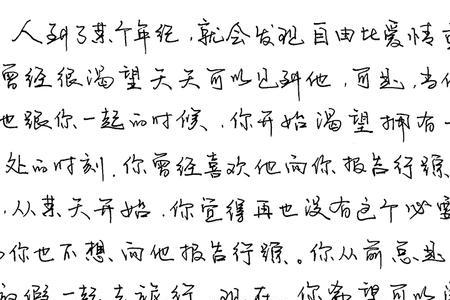 人到了某个年纪，就会发现自由比爱情
曾经很渴望天天可以见到他，可是，当
他跟你一起的时候，你开始渴望拥有
处的时刻．你曾经喜欢他向你报告行踪
，从某天开始，你觉得再也没有这个必要
你也不想向他报告行踪。你从前总是
放假一起去旅行，现在，你希望可以